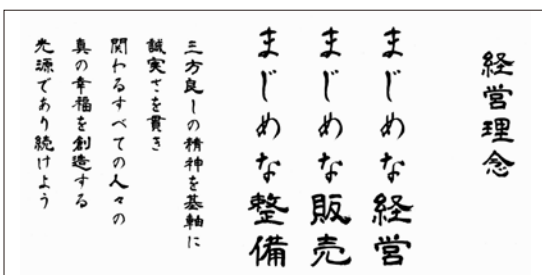 経営理念
まじめな経営
まじめな販売
まじめな整備
三方良しの精神を基軸に
誠実さを貫き
関わるすべての人々の
真の幸福を創造する
光源であり続けよう